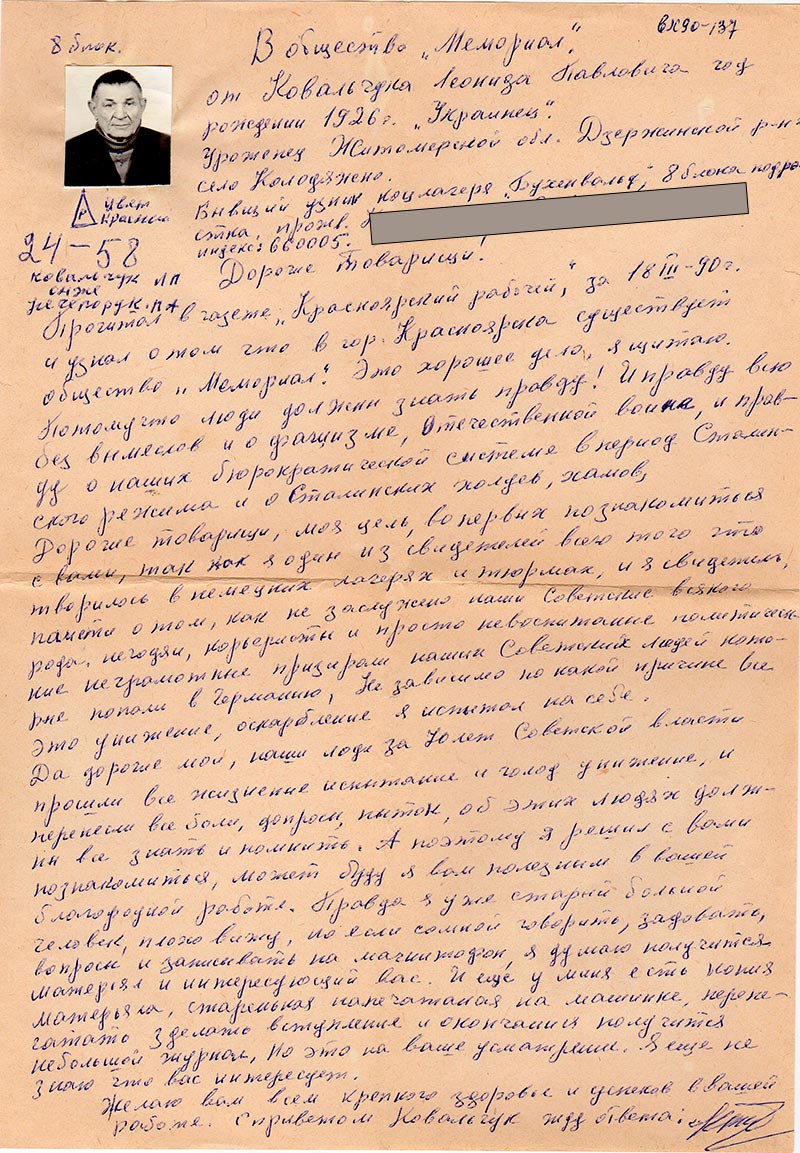 8 блок.
вх90-137
В общество „Мемориал".
от Ковальчука Леонида Павловича год
рождении 1926г. „Украинец".
Уроженец Житомерской обл. Дзержинской р-н
село Колодяжно.
Бывший узник концлагеря „Бухенвальд", 8 блока подро-
стка, прожв.
индекс: 660005.
Р
Цвет
Красный
24-58
Ковальчук ЛП
онже
Нечепорук.
Дорогие Товарищи!
Прочитал в газете, „Красноярский рабочей", за 18 III-90г.
и узнал о том что в гор. Красноярска существует
общество „Мемориал". Это хорошее дело, я щитаю.
Потомучто люди должен знать правду! И правду всю
без вымеслов и о фачизме, Отечественной война, и прав-
ду о наших бюрократической системе в период Сталин-
ского режима и о Сталинских холдев, хамов,
Дорогие товарищи, моя цель, во первых познакомиться
с вами, так как я один из свидетелей всего того что
творилось в немецких лагерях и тюрмах, и я свидетель,
памети о том, как не заслужено наши Советские всякого
рода, негодяи, корьеристы и просто невоспитание политическ-
кие неграмотные призирали нашых Советских людей кото-
рые попали в Германию, Не зависимо по какой причине все
это унижение, оскарбление я испытал на себе.
Да дорогие мои, наши люди за 70лет Советской власти
прошли все жизнение испытание и голод унижение, и
перенесли все боли, допросы, пыток, об этих людях долж-
ны все знать и помнить. А поэтому я решил с вами
познакомиться, может буду я вам полезным в вашей
благородной работе. Правда я уже старый больной
человек, плохо вижу, но если сомной говорить, задовать,
вопросы и записывать на магнитофон, я думаю получится
матерьял и интересующий вас. И еще у миня есть копия
матерьяла, старенькая напечатаная на машинке, перепе-
чатать зделать вступление и окончания получится
небольшой журнал, Но это на ваше усматрение. Я еще не
знаю что вас интересует.
Желаю вам всем крепкого здоровье и успехов в вашей
работе. С приветом Ковальчук жду ответа: